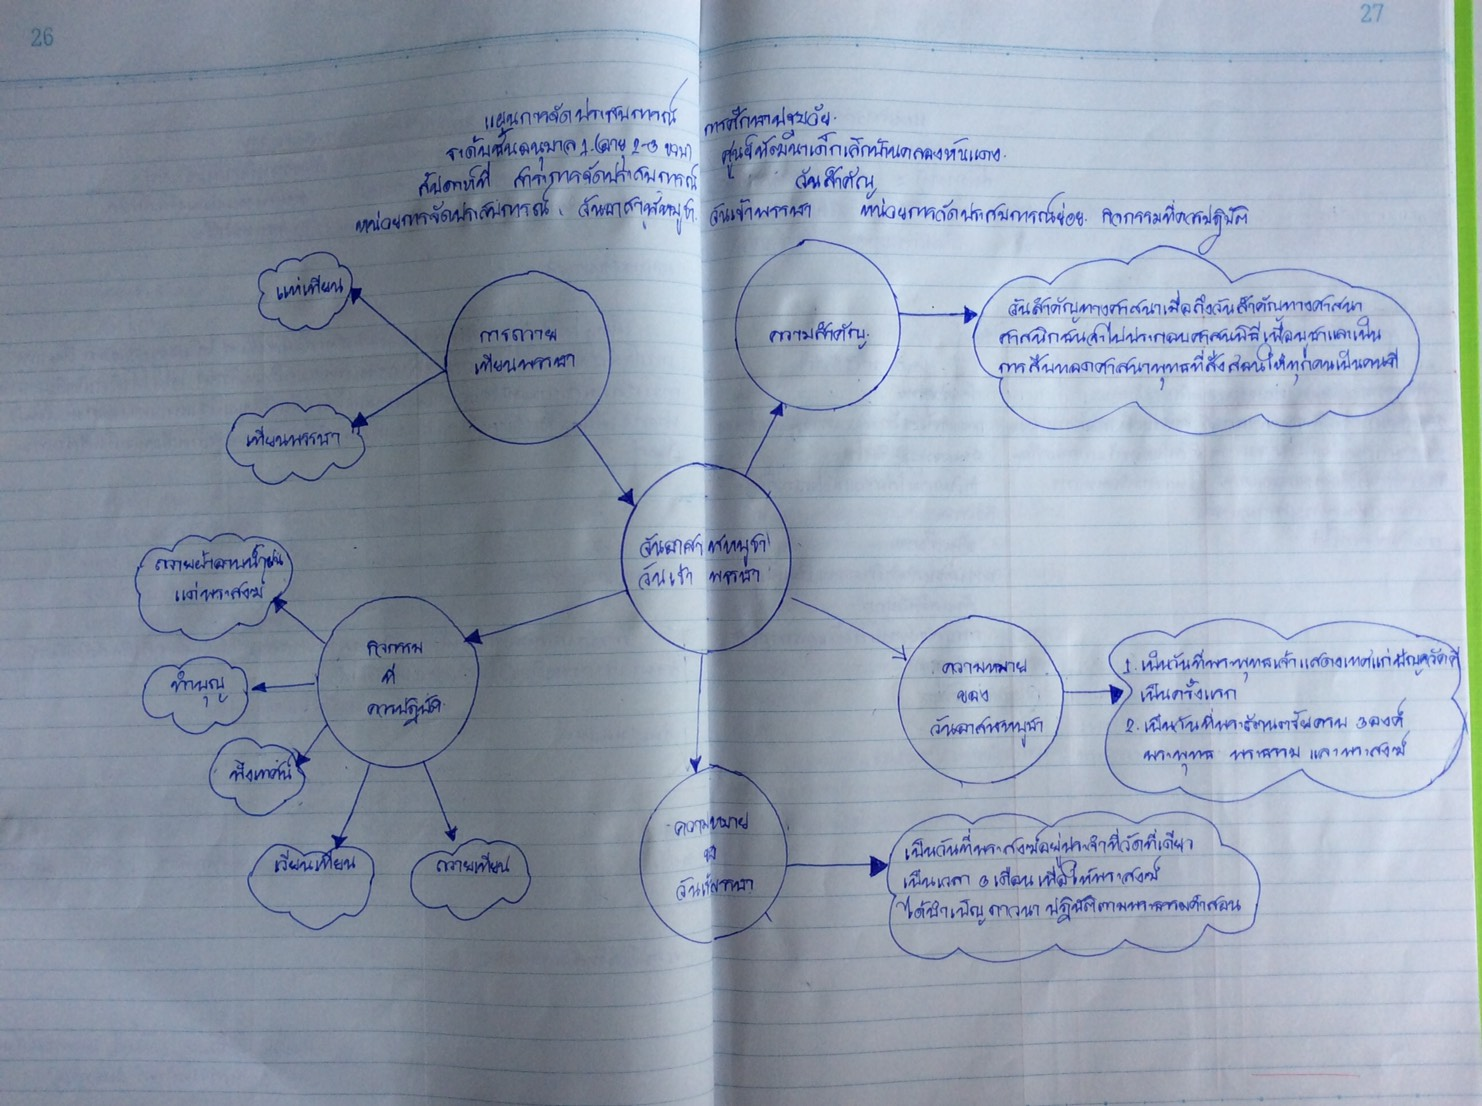 26
27
แผนการจัดประสบการณ์ การศึกษาปฐมวัย
ระดับชั้นอนุบาล 1 (อายุ 2-3 ขวบ) ศูนย์พัฒนาเด็กเล็กบ้านคลองหันแดง
สัปดาห์ที่ สาระการจัดประสบการณ์ วันสำคัญ
หน่วยการจัดประสบการณ์ วันอาสาฬหบูชา วันเข้าพรรษา หน่วยการจัดประสบการณ์ย่อย กิจกรรมที่ควรปฏิบัติ
แห่เทียน
การถวาย
เทียนพรรษา
เทียนพรรษา
ความสำคัญ
วันสำคัญทางศาสนาเมื่อถึงวันสำคัญทางศาสนา
ศาสนิกชนจะไปประกอบศาสนพิธีเพื่อบูชาและเป็น
การสืบทอดศาสนาพุทธที่สั่งสอนให้ทุกคนเป็นคนดี
วันอาสาฬหบูชา
วันเข้าพรรษา
ถวายผ้าอาบน้ำฝน
แด่พระสงฆ์
ทำบุญ
ฟังเทศน์
เวียนเทียน
ถวายเทียน
กิจกรรม
ที่
ควรปฏิบัติ
ความหมาย
ของ
วันอาสาฬหบูชา
1. เป็นวันที่พระพุทธเจ้าแสดงเทศแก่ปัญจวัคคี
เป็นครั้งแรก
2. เป็นวันที่พระรัตนตรัยครบ 3 องค์
พระพุทธ พระธรรม และพระสงฆ์
ความหมาย
วันเข้าพรรษา
เป็นวันที่พระสงฆ์อยู่ประจำที่วัดที่เดียว
เป็นเวลา 3 เดือน เพื่อให้พระสงฆ์
ได้บำเพ็ญภาวนา ปฏิบัติตามพระธรรมคำสอน